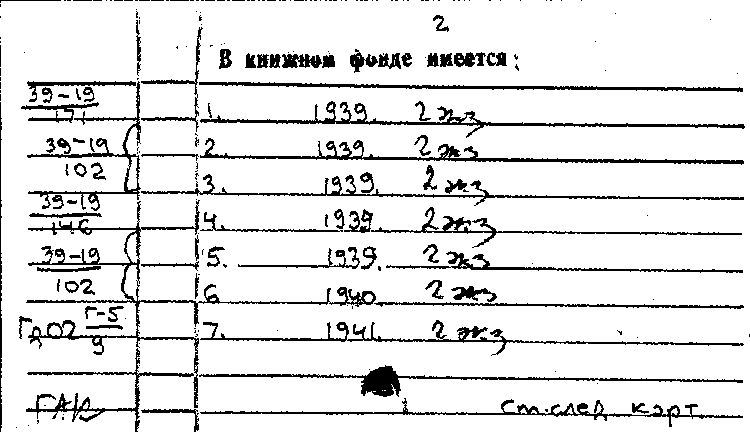 2
В книжном фонде имеется:
39-19
171 1. 1939. 2 экз
39-19 2. 1939. 2 экз
102 3. 1939. 2 экз
39-19
146 4. 1939. 2 экз
39-19 5. 1939. 2 экз
102 6 1940. 2 экз
Г-5
9 7. 1941. 2 экз
см. след карт.